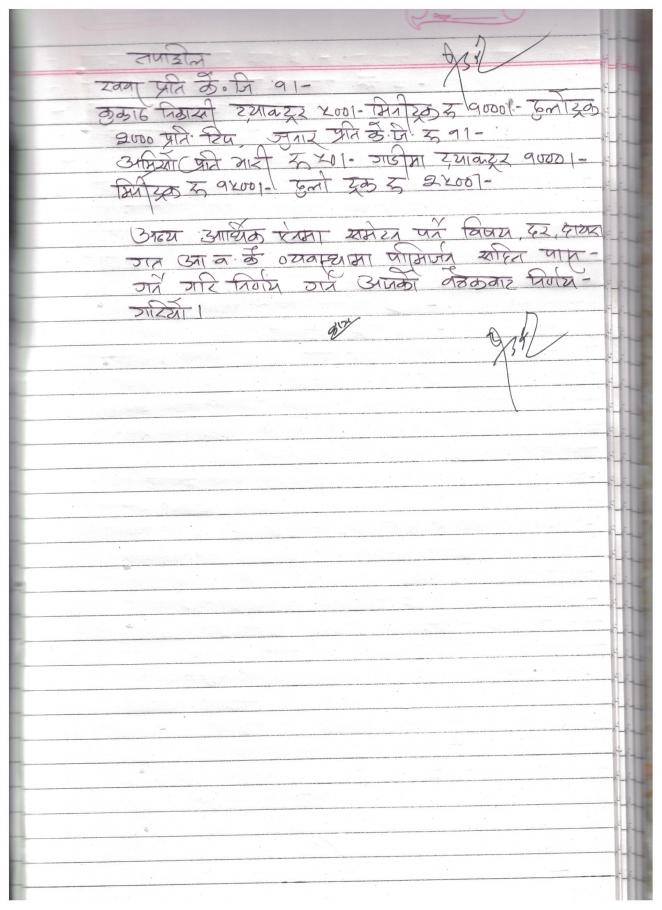 तपसिल
खवा प्रति के.जि १।-
कुकाठ निकासी ट्याक्टर ५००।- मिनीट्रक रु १०००।- ठुलोट्रक
२००० प्रति टिप, जुनार प्रति के.जि. रु १।-
अम्रिसो प्रति भारी रु ५०।- गाडीमा ट्याक्टर १०००।-
मिनीट्रक रु १५००।- ठुलो ट्रक रु २५००।-
अन्य आर्थिक ऐनमा समेटन पर्ने विषय, दर, दायरा
गत आ.व. कै व्यवस्थामा परिमार्जन सहित पास -
गर्ने गरि निर्णय गर्न आजको बैठकबाट निर्णय -
गरियो।